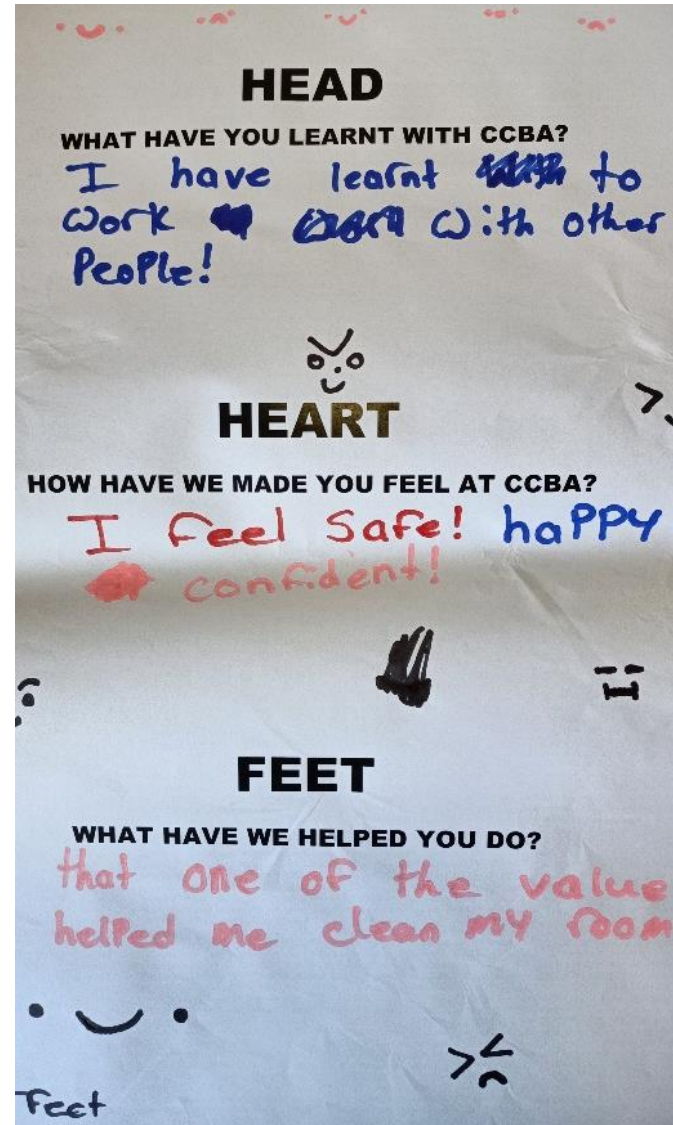 HEAD
WHAT HAVE YOU LEARNT WITH CCBA?
I have learnt to
work with other
People!
HEART
HOW HAVE WE MADE YOU FEEL AT CCBA?
I feel Safe! haPPY
confident!
FEET
WHAT HAVE WE HELPED YOU DO?
that one of the value
helped me clean my room
Feet